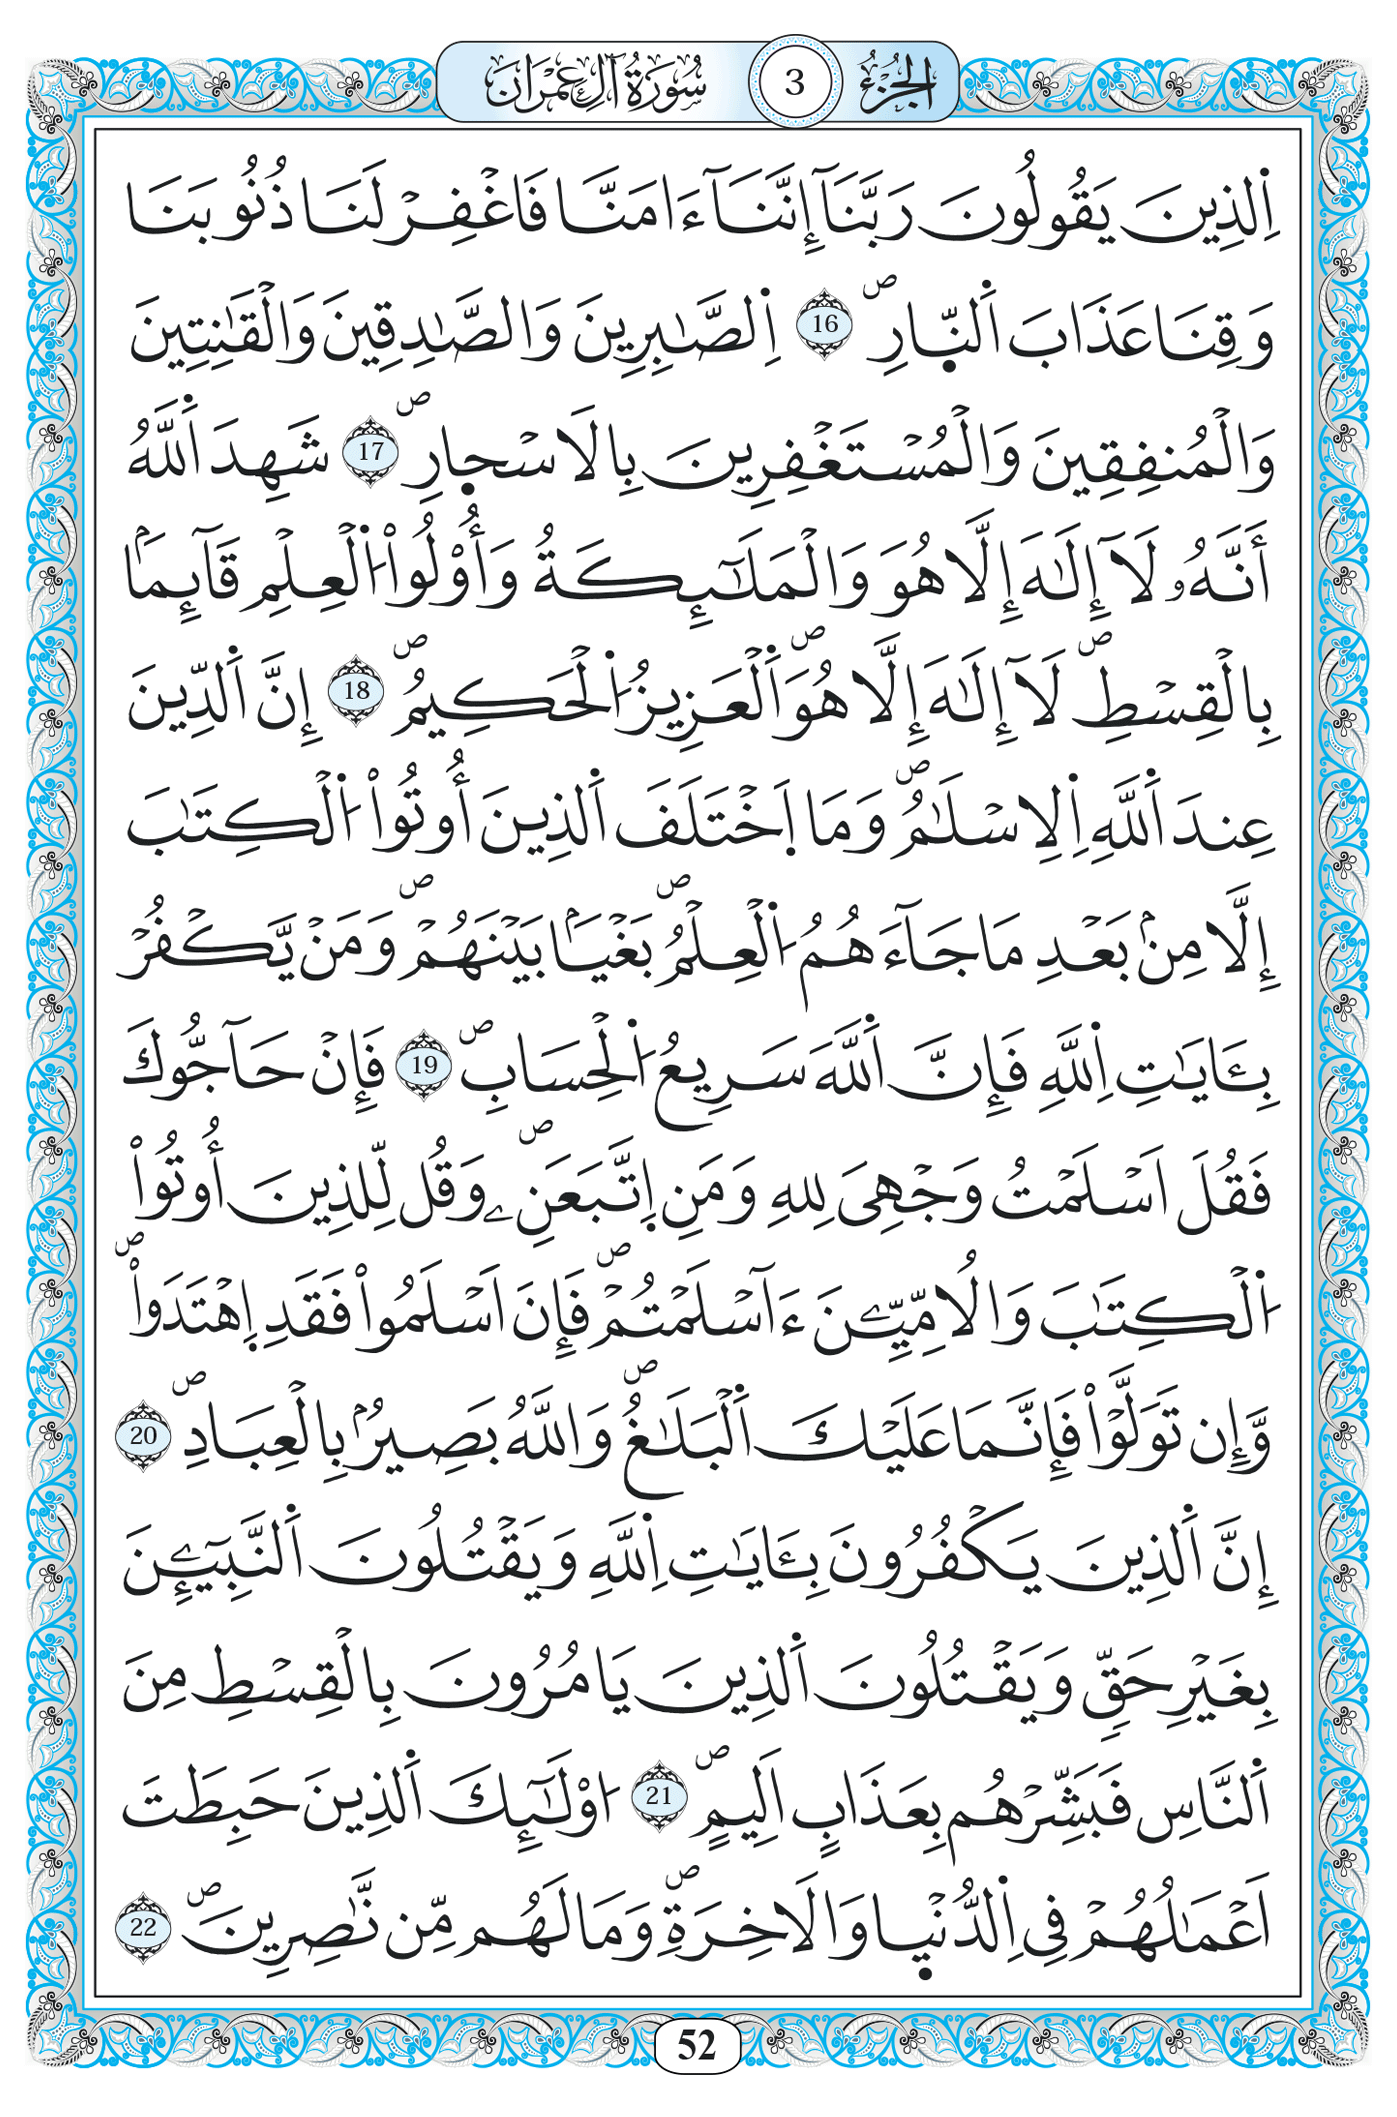 الجزء 3 سورة آل عمران
اِ۬لذِينَ يَقُولُونَ رَبَّنَآ إِنَّنَآ ءَامَنَّا فَاغْفِرْ لَنَا ذُنُوبَنَا
وَقِنَا عَذَابَ اَ۬لنّ۪ارِۖ 16 اِ۬لصَّٰبِرِينَ وَالصَّٰدِقِينَ وَالْقَٰنِتِينَ
وَالْمُنفِقِينَ وَالْمُسْتَغْفِرِينَ بِالَاسْح۪ارِۖ 17 شَهِدَ اَ۬للَّهُ
أَنَّهُۥ لَآ إِلَٰهَ إِلَّا هُوَ وَالْمَلَٰٓئِكَةُ وَأُوْلُواْ اُ۬لْعِلْمِ قَآئِماَۢ
بِالْقِسْطِۖ لَآ إِلَٰهَ إِلَّا هُوَۖ اَ۬لْعَزِيزُ اُ۬لْحَكِيمُۖ 18 إِنَّ اَ۬لدِّينَ
عِندَ اَ۬للَّهِ اِ۬لِاسْلَٰمُۖ وَمَا اَ۪خْتَلَفَ اَ۬لذِينَ أُوتُواْ اُ۬لْكِتَٰبَ
إِلَّا مِنۢ بَعْدِ مَا جَآءَهُمُ اُ۬لْعِلْمُۖ بَغْياَۢ بَيْنَهُمْۖ وَمَنْ يَّكْفُرْ
بِـَٔايَٰتِ اِ۬للَّهِ فَإِنَّ اَ۬للَّهَ سَرِيعُ اُ۬لْحِسَابِۖ 19 فَإِنْ حَآجُّوكَ
فَقُلَ اَسْلَمْتُ وَجْهِىَ لِلهِ وَمَنِ اِ۪تَّبَعَنِۦۖ وَقُل لِّلذِينَ أُوتُواْ
اُ۬لْكِتَٰبَ وَالُامِّيِّـۧنَ ءَآسْلَمْتُمْۖ فَإِنَ اَسْلَمُواْ فَقَدِ اِ۪هْتَدَواْۖ
وَّإِن تَوَلَّوْاْ فَإِنَّمَا عَلَيْكَ اَ۬لْبَلَٰغُۖ وَاللَّهُ بَصِيرُۢ بِالْعِبَادِۖ 20
إِنَّ اَ۬لذِينَ يَكْفُرُونَ بِـَٔايَٰتِ اِ۬للَّهِ وَيَقْتُلُونَ اَ۬لنَّبِيٓـِٕۧنَ
بِغَيْرِ حَقٍّ وَيَقْتُلُونَ اَ۬لذِينَ يَامُرُونَ بِالْقِسْطِ مِنَ
اَ۬لنَّاسِ فَبَشِّرْهُم بِعَذَابٍ اَلِيمٍۖ 21 اُوْلَٰٓئِكَ اَ۬لذِينَ حَبِطَتَ
اَعْمَٰلُهُمْ فِى اِ۬لدُّنْي۪ا وَالَاخِرَةِۖ وَمَا لَهُم مِّن نَّٰصِرِينَۖ 22
52